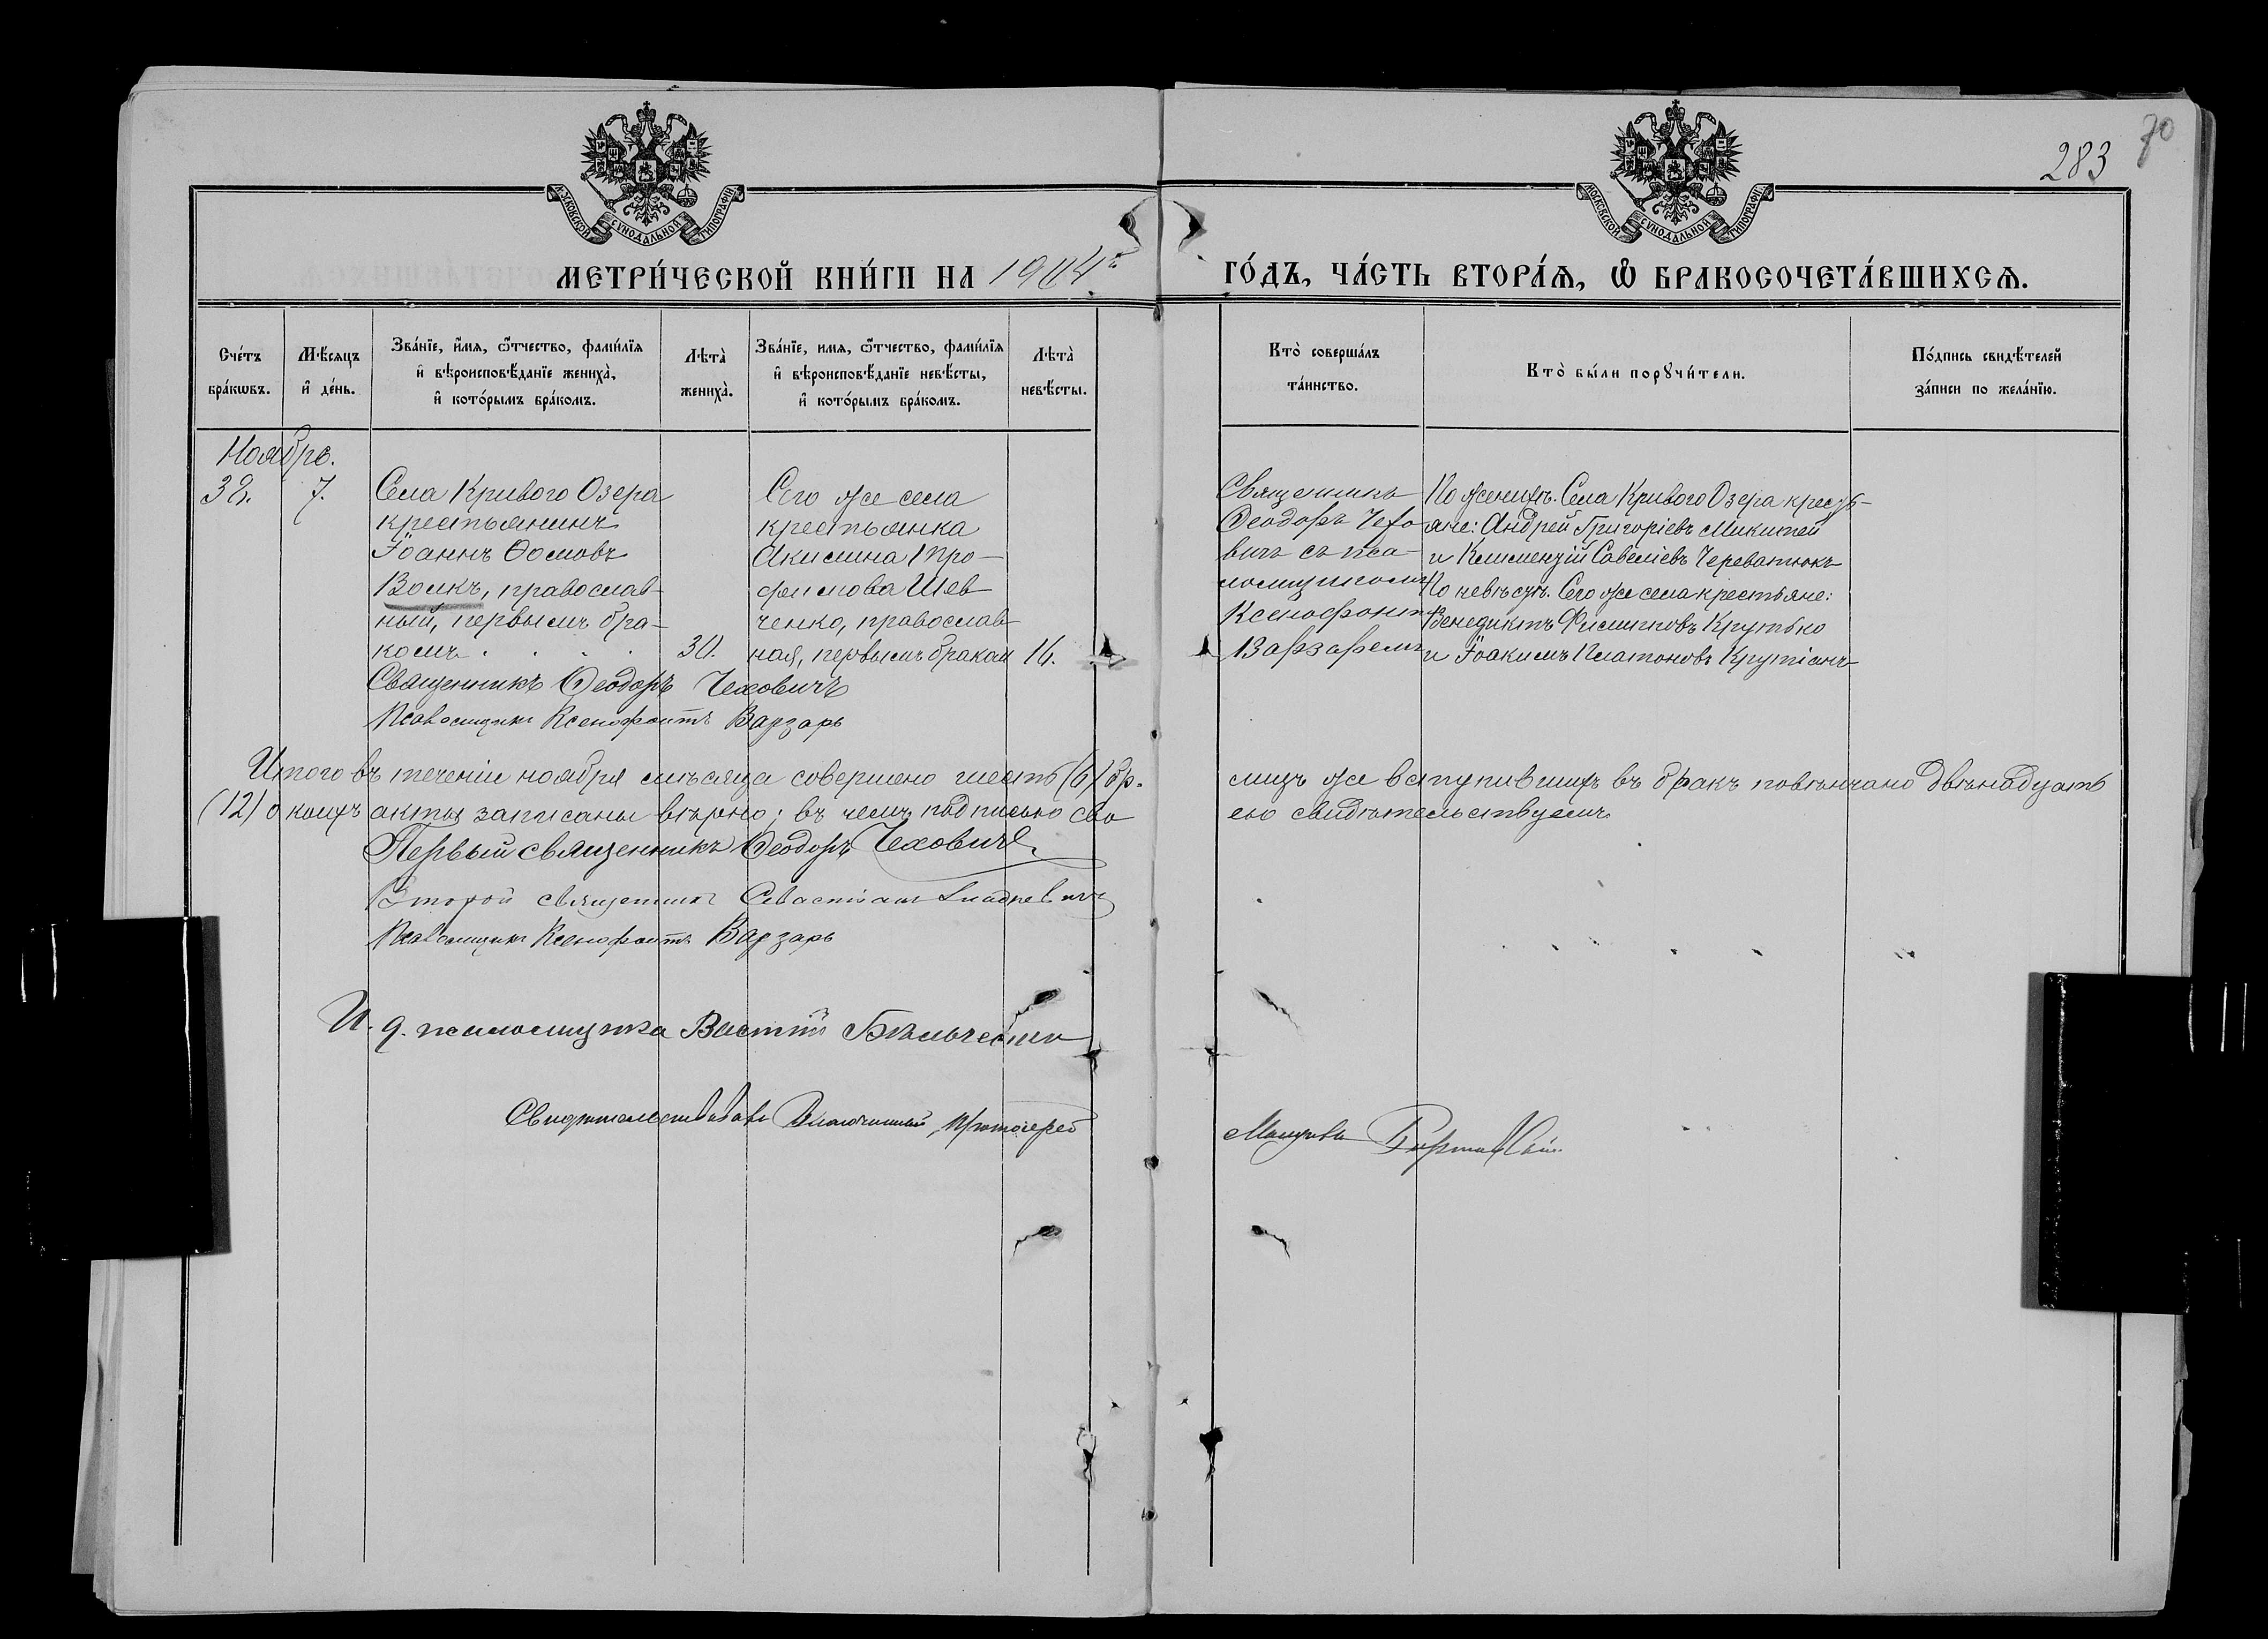 70
283
МОСКОВСКОЙ СѴНОДАЛЬНОЙ ТИПОГРАФІИ
МОСКОВСКОЙ СѴНОДАЛЬНОЙ ТИПОГРАФІИ
МЕТРИ́ЧЕСКОЙ КНИ́ГИ НА 1904 ГО́ДЪ, ЧА́СТЬ ВТОРА́Ѧ, Ѿ БРАКОСОЧЕТА́ВШИХСѦ.
Сче́тъ
бра́кѡвъ.
Мѣ́сяцъ
и҆ де́нь.
Зва́нїе, и҆́мя, ѻ҆́тчество, фами́лїя
и҆ вѣроисповѣ́данїе жениха̀,
и҆ кото́рымъ бра́комъ.
Лѣта̀
жениха̀.
Зва́нїе, имя, ѻ҆́тчество, фами́лїя
и҆ вѣроисповѣ́данїе невѣ́сты,
и҆ кото́рымъ бра́комъ.
Лѣта̀
невѣ́сты.
Кто̀ соверша́лъ
та́инство.
Кто̀ бы́ли порꙋчи́тели.
По́дпись свидѣ́телей
за́писи по жела́нїю.
Ноябрь.
38.
7.
Села Кривого Озера
крестьянинъ
Іоаннъ Ѳомовъ
Волкъ, православ-
ный, первымъ бра-
комъ . . . .
30.
Сего же села
крестьянка
Акилина Тро-
фимова Шев
ченко, православ
ная, первымъ бракомъ
16.
Священникъ
Ѳеодоръ Чехо
вичъ съ пса-
ломщикомъ
Ксенофонтомъ
Варзаремъ
По женихѣ. Села Кривого Озера кресть-
яне: Андрей Григоріевъ Микитей
и Климентій Савеліевъ Череватюкъ
По невѣстѣ. Сего же села крестьяне:
Венедиктъ Филипповъ Крутько
и Іоакимъ Платоновъ Крутіанъ
Священникъ Ѳеодоръ Чеховичъ
Псаломщикъ Ксенофонтъ Варзарь
Итого въ теченіи ноября мѣсяца совершено шесть (6) бр. лицъ же вступившихъ въ бракъ повѣнчано двѣнадцать
(12) о коихъ акты записаны вѣрно; въ чемъ подписью сво ею свидѣтельствуемъ
Первый священникъ Ѳеодоръ Чеховичъ
Второй священникъ Севастіанъ
Псаломщикъ Ксенофонтъ Варзарь
И. д. псаломщика
Свидѣтельствовалъ Благочинный, Протоіерей